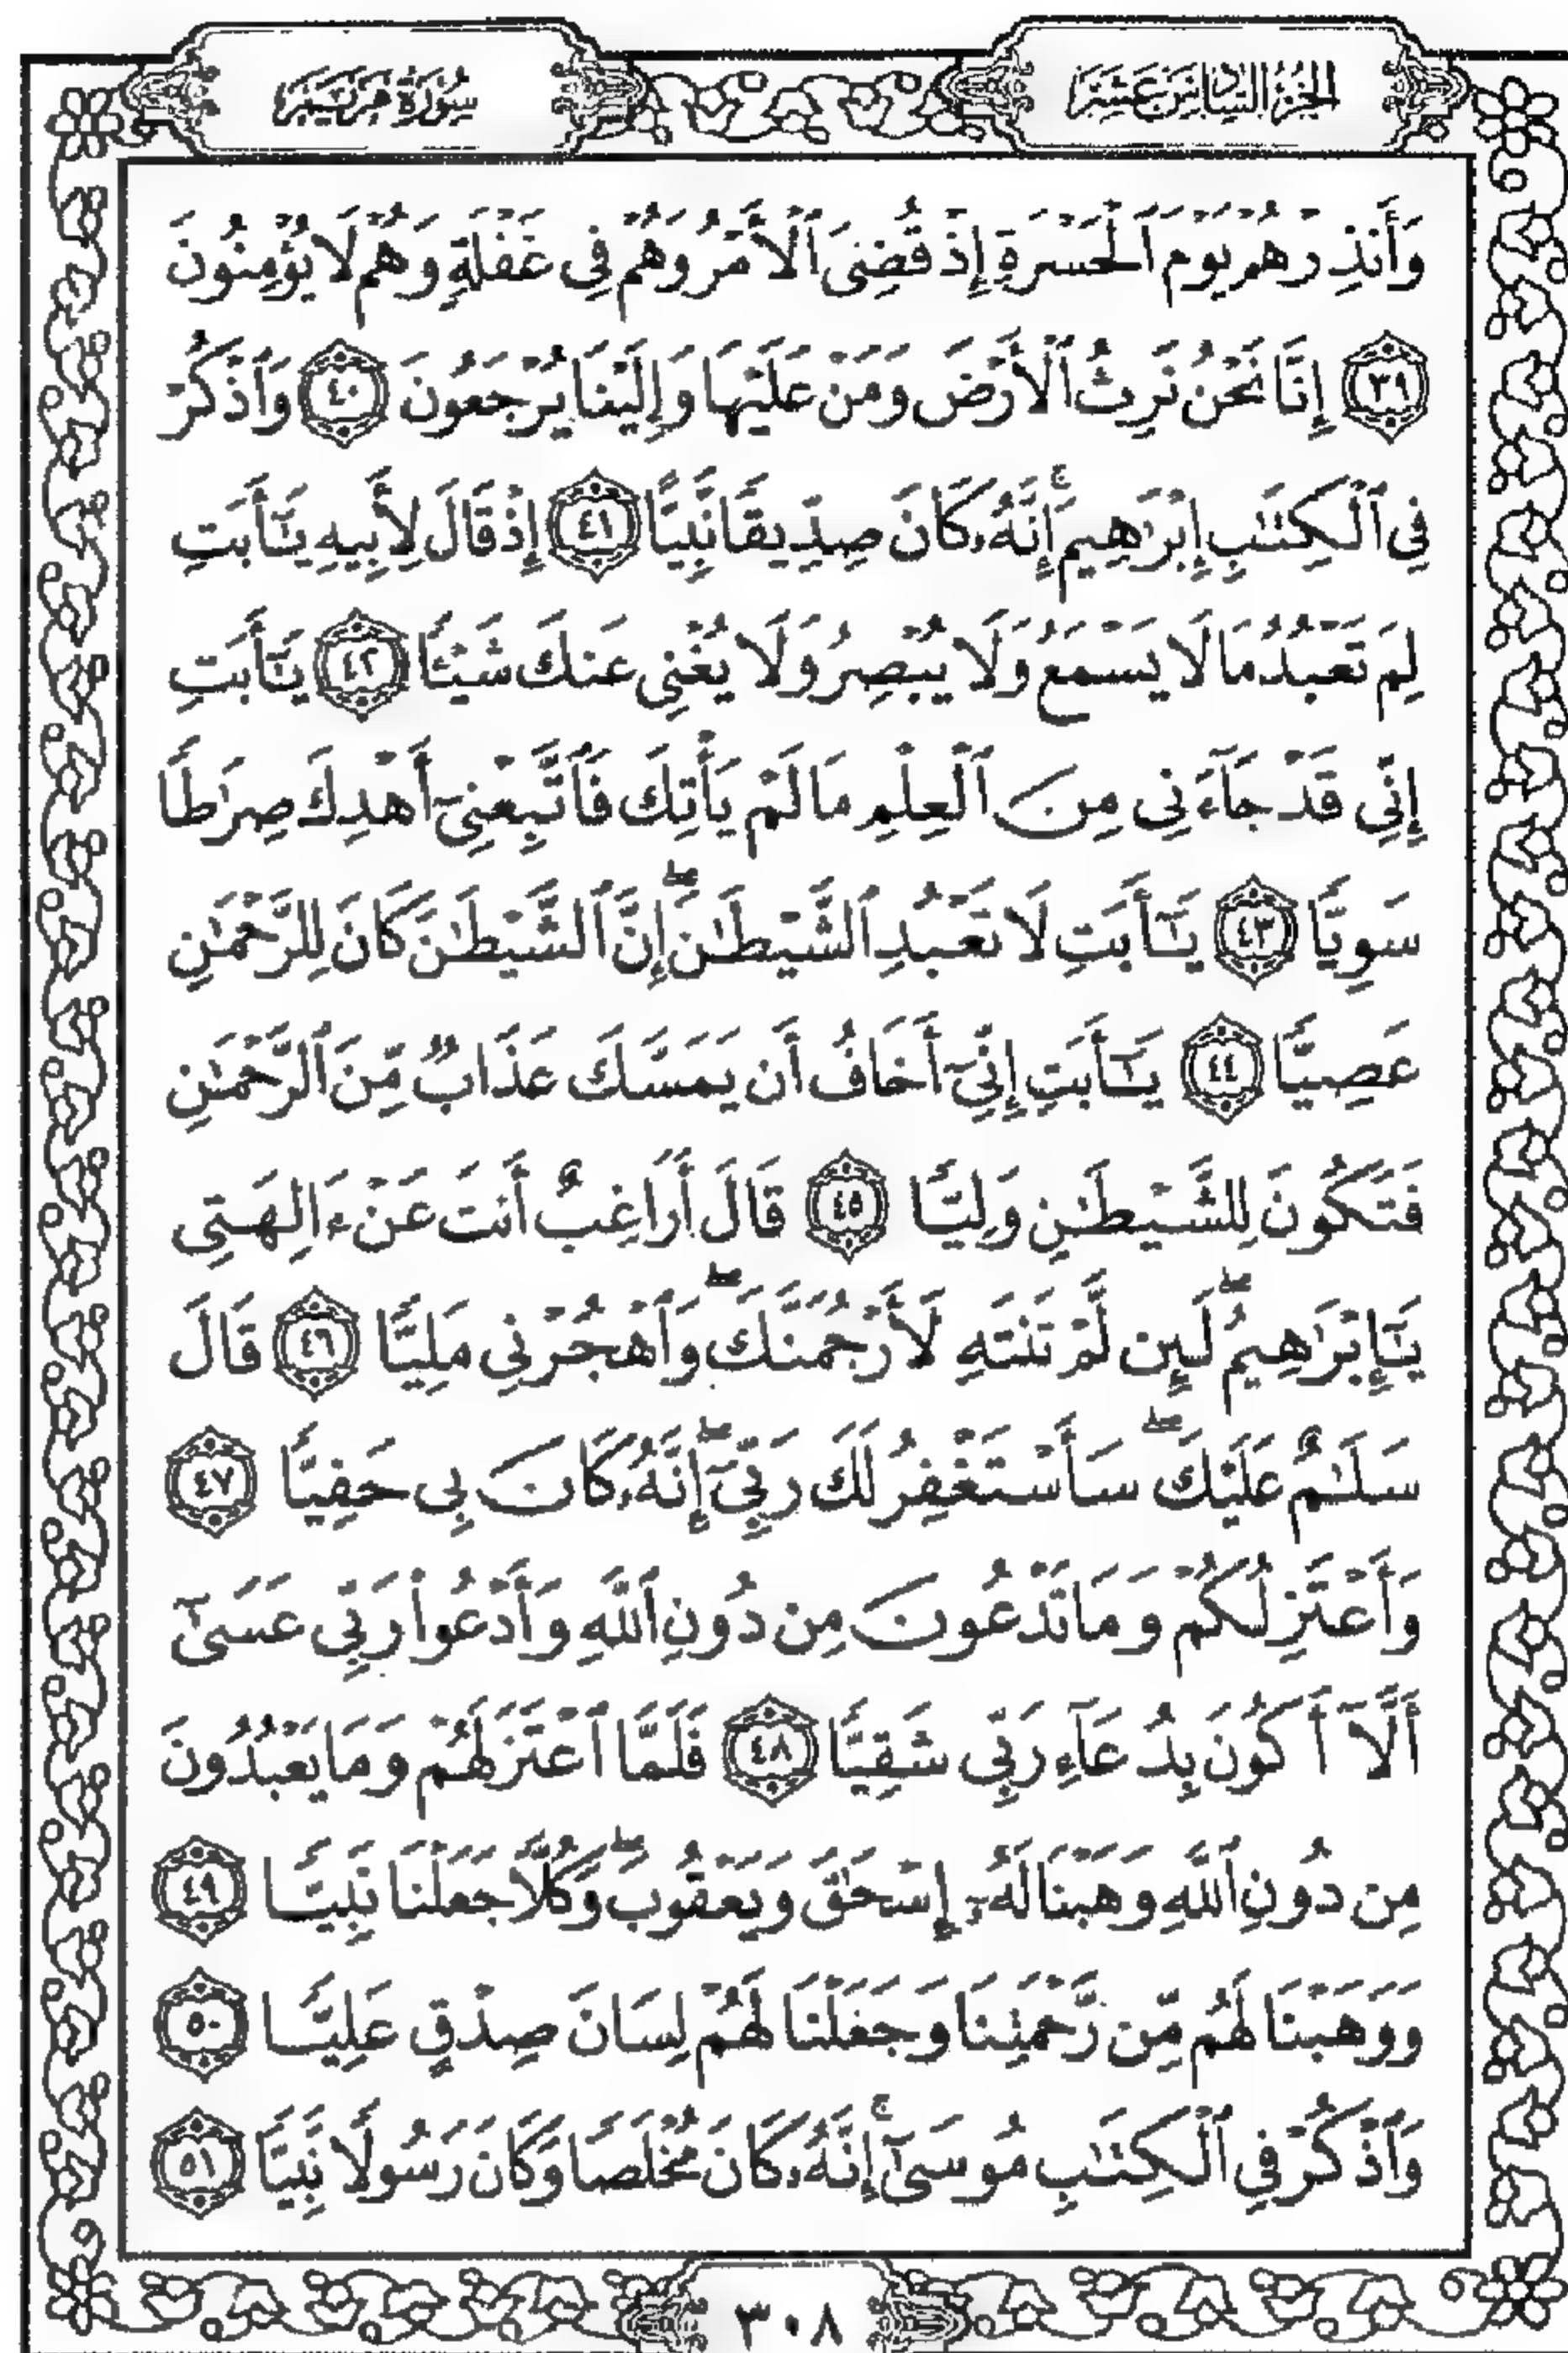 الجزء السادس عشر
سورة مريم
وَأَنذِرْهُمْ يَوْمَ ٱلْحَسْرَةِ إِذْ قُضِىَ ٱلْأَمْرُ وَهُمْ فِى غَفْلَةٍ وَهُمْ لَا يُؤْمِنُونَ
٣٩ إِنَّا نَحْنُ نَرِثُ ٱلْأَرْضَ وَمَنْ عَلَيْهَا وَإِلَيْنَا يُرْجَعُونَ ٤٠ وَٱذْكُرْ
فِى ٱلْكِتَـٰبِ إِبْرَٰهِيمَ ۚ إِنَّهُۥ كَانَ صِدِّيقًا نَّبِيًّا ٤١ إِذْ قَالَ لِأَبِيهِ يَـٰٓأَبَتِ
لِمَ تَعْبُدُ مَا لَا يَسْمَعُ وَلَا يُبْصِرُ وَلَا يُغْنِى عَنكَ شَيْـًٔا ٤٢ يَـٰٓأَبَتِ
إِنِّى قَدْ جَآءَنِى مِنَ ٱلْعِلْمِ مَا لَمْ يَأْتِكَ فَٱتَّبِعْنِىٓ أَهْدِكَ صِرَٰطًا
سَوِيًّا ٤٣ يَـٰٓأَبَتِ لَا تَعْبُدِ ٱلشَّيْطَـٰنَ ۖ إِنَّ ٱلشَّيْطَـٰنَ كَانَ لِلرَّحْمَـٰنِ
عَصِيًّا ٤٤ يَـٰٓأَبَتِ إِنِّىٓ أَخَافُ أَن يَمَسَّكَ عَذَابٌ مِّنَ ٱلرَّحْمَـٰنِ
فَتَكُونَ لِلشَّيْطَـٰنِ وَلِيًّا ٤٥ قَالَ أَرَاغِبٌ أَنتَ عَنْ ءَالِهَتِى
يَـٰٓإِبْرَٰهِيمُ ۖ لَئِن لَّمْ تَنتَهِ لَأَرْجُمَنَّكَ ۖ وَٱهْجُرْنِى مَلِيًّا ٤٦ قَالَ
سَلَـٰمٌ عَلَيْكَ ۖ سَأَسْتَغْفِرُ لَكَ رَبِّىٓ ۖ إِنَّهُۥ كَانَ بِى حَفِيًّا ٤٧
وَأَعْتَزِلُكُمْ وَمَا تَدْعُونَ مِن دُونِ ٱللَّهِ وَأَدْعُوا۟ رَبِّى عَسَىٰٓ
أَلَّآ أَكُونَ بِدُعَآءِ رَبِّى شَقِيًّا ٤٨ فَلَمَّا ٱعْتَزَلَهُمْ وَمَا يَعْبُدُونَ
مِن دُونِ ٱللَّهِ وَهَبْنَا لَهُۥٓ إِسْحَـٰقَ وَيَعْقُوبَ ۖ وَكُلًّا جَعَلْنَا نَبِيًّا ٤٩
وَوَهَبْنَا لَهُم مِّن رَّحْمَتِنَا وَجَعَلْنَا لَهُمْ لِسَانَ صِدْقٍ عَلِيًّا ٥٠
وَٱذْكُرْ فِى ٱلْكِتَـٰبِ مُوسَىٰٓ ۚ إِنَّهُۥ كَانَ مُخْلَصًا وَكَانَ رَسُولًا نَّبِيًّا ٥١
٣٠٨